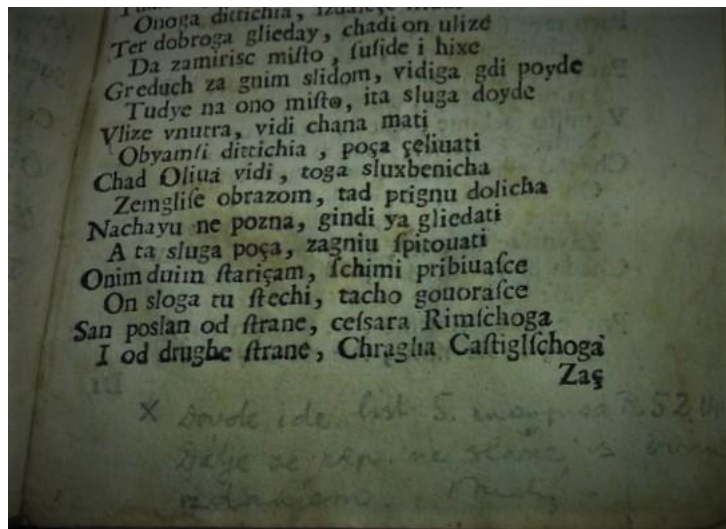 Onoga dittichia,
Ter dobroga glieday, chadi on ulizé
Da zamirisc miſto, ſuſide i hixe
Greduch za gnim slidom, vidiga gdi poyde
Tudye na ono miſto, ita sluga doyde
Vlize vnutra, vidi chana mati
Obyamſi dittichia, poça çeliuati
Chad Oliua vidi, toga sluxbenicha
Zemgliſe obrazom, tad prignu dolicha
Nachayu ne pozna, gindi ya gliedati
A ta sluga poça, zagniu ſpitouati
Onim duim ſtariçam, ſchimi pribiuaſce
On sloga tu ſtechi, tacho gouoraſce
San poslan od ſtrane, ceſsara Rimſchoga
I od drughe ſtrane, Chraglia Caſtiglſchoga
Zaç
x Dovde ide list 5.